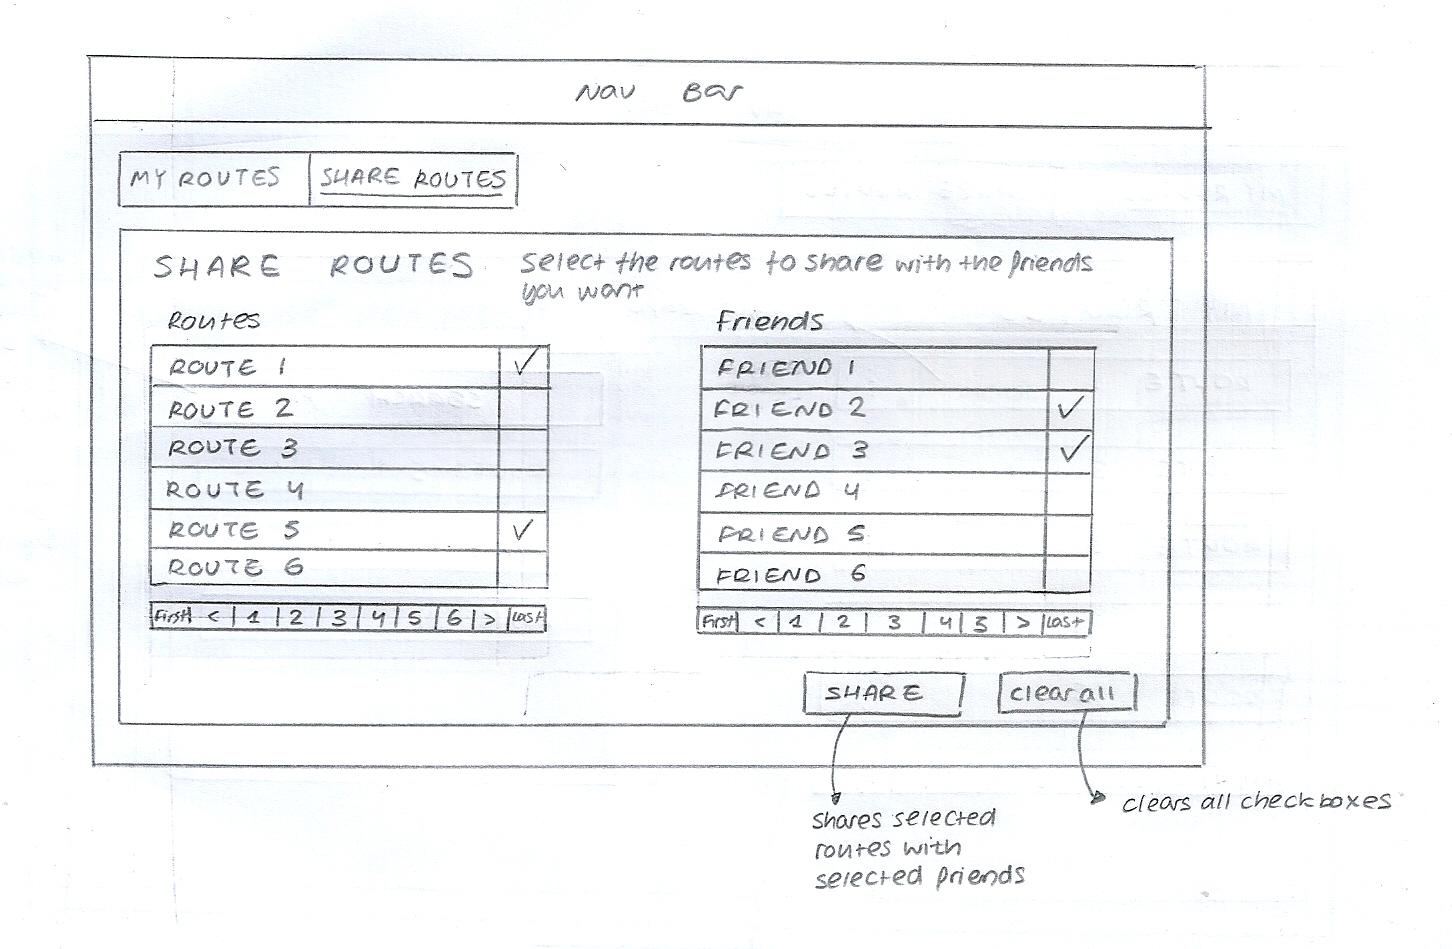 Nav Bar
MY ROUTES SHARE ROUTES
SHARE ROUTES select the routes to share with the friends
you want
Routes
ROUTE 1 ✓
ROUTE 2
ROUTE 3
ROUTE 4
ROUTE 5 ✓
ROUTE 6
First < 1 2 3 4 5 6 > Last
Friends
FRIEND 1
FRIEND 2 ✓
FRIEND 3 ✓
FRIEND 4
FRIEND 5
FRIEND 6
First < 1 2 3 4 5 > Last
SHARE clear all
shares selected
routes with
selected friends
clears all checkboxes